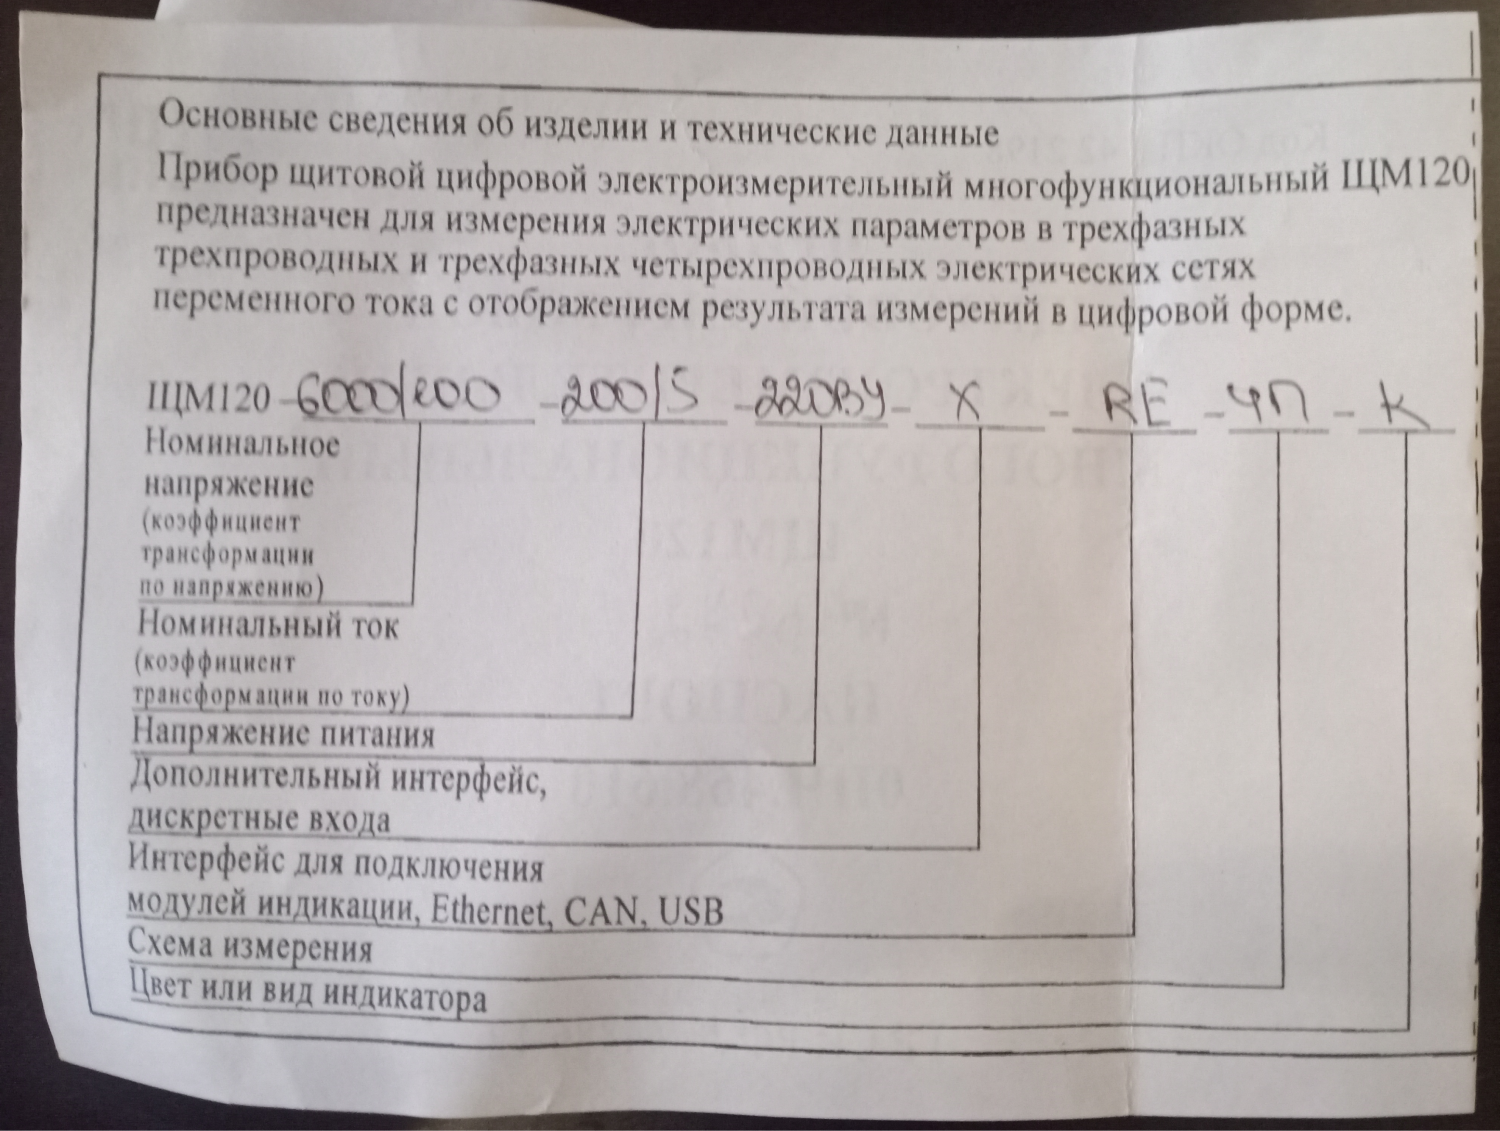 Основные сведения об изделии и технические данные
Прибор щитовой цифровой электроизмерительный многофункциональный ЩМ120
предназначен для измерения электрических параметров в трехфазных
трехпроводных и трехфазных четырехпроводных электрических сетях
переменного тока с отображением результата измерений в цифровой форме.
ЩМ120 - 6000/100 - 200/5 - 220ВУ - X - RE - 4П - К
Номинальное
напряжение
(коэффициент
трансформации
по напряжению)
Номинальный ток
(коэффициент
трансформации по току)
Напряжение питания
Дополнительный интерфейс,
дискретные входа
Интерфейс для подключения
модулей индикации, Ethernet, CAN, USB
Схема измерения
Цвет или вид индикатора